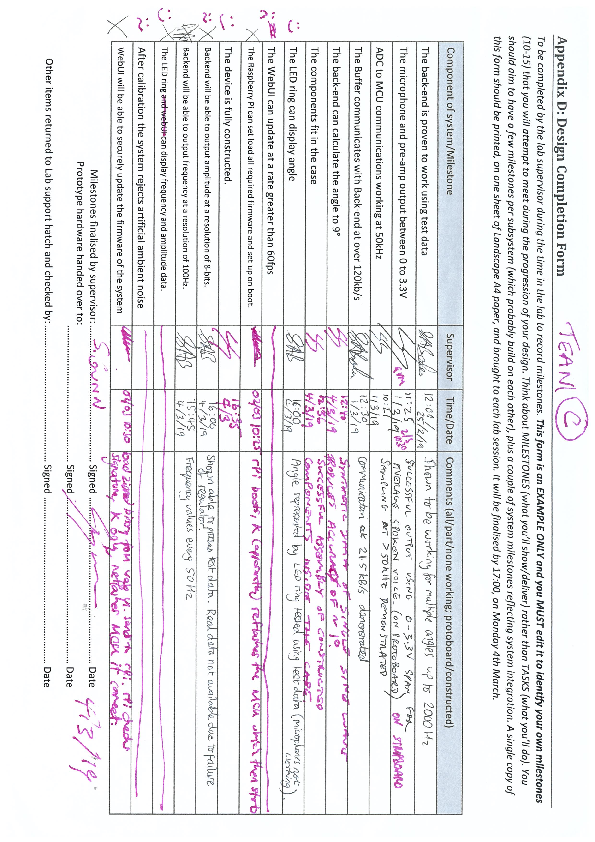 Appendix D: Design Completion Form
TEAM C
To be completed by the lab supervisor during the time in the lab to record milestones. This form is an EXAMPLE ONLY and you MUST edit it to identify your own milestones
(10-15) that you will attempt to meet during the progression of your design. Think about MILESTONES (what you'll show/deliver) rather than TASKS (what you'll do). You
should aim to have a few milestones per subsystem (which probably build on each other), plus a couple of system milestones reflecting system integration. A single copy of
this form should be printed, on one sheet of Landscape A4 paper, and brought to each lab session. It will be finalised by 17:00, on Monday 4th March.
Component of system/Milestone Supervisor Time/Date Comments (all/part/none working; protoboard/constructed)
The back-end is proven to work using test data 12:01 25/2/19 Shown to be working for multiple angles up to 2000 Hz
The microphone and pre-amp output between 0 to 3.3V 11:25 1/3/19 SUCCESSFUL OUTPUT USING 0-3.3V SPAN FOR
SPOKEN VOICE. (ON PROTOBOARD) ON STRIPBOARD
ADC to MCU communications working at 50kHz 1/3/19 SAMPLING AT >50kHz DEMONSTRATED
The Buffer communicates with Back end at over 120kb/s 12:30 1/3/19 Communication at 215kb/s demonstrated
The back-end can calculate the angle to 9° 4/3/19 SYNTHETIC DATA OF SINGLE SINE WAVE
The components fit in the case 4/3/19 SUCCESSFUL ASSEMBLY OF CONSTRUCTED
COMPONENTS INSIDE THE CASE
The LED ring can display angle 16:00 4/3/19 Angle represented by LED ring tested using test data (microphones not
working).
The WebUI can update at a rate greater than 60fps
The Raspberry Pi can set load all required firmware and set up on boot. 10:25 rPi boots, & (apparently) reflashes the MCU which then starts
The device is fully constructed.
Backend will be able to output amplitude at a resolution of 8-bits. 16:00 4/3/19 Shown able to return test data. Real data not available due to failure
Backend will be able to output frequency at a resolution of 100Hz. 15:45 4/3/19 Frequency values every 50Hz
The LED ring and webUI can display frequency and amplitude data.
After calibration the system rejects artificial ambient noise
WebUI will be able to securely update the firmware of the system 10:30
signature, & only reflashes MCU if correct.
Milestones finalised by supervisor: Signed Date 4/3/19
Prototype hardware handed over to: Signed Date
Other items returned to Lab support hatch and checked by: Signed Date